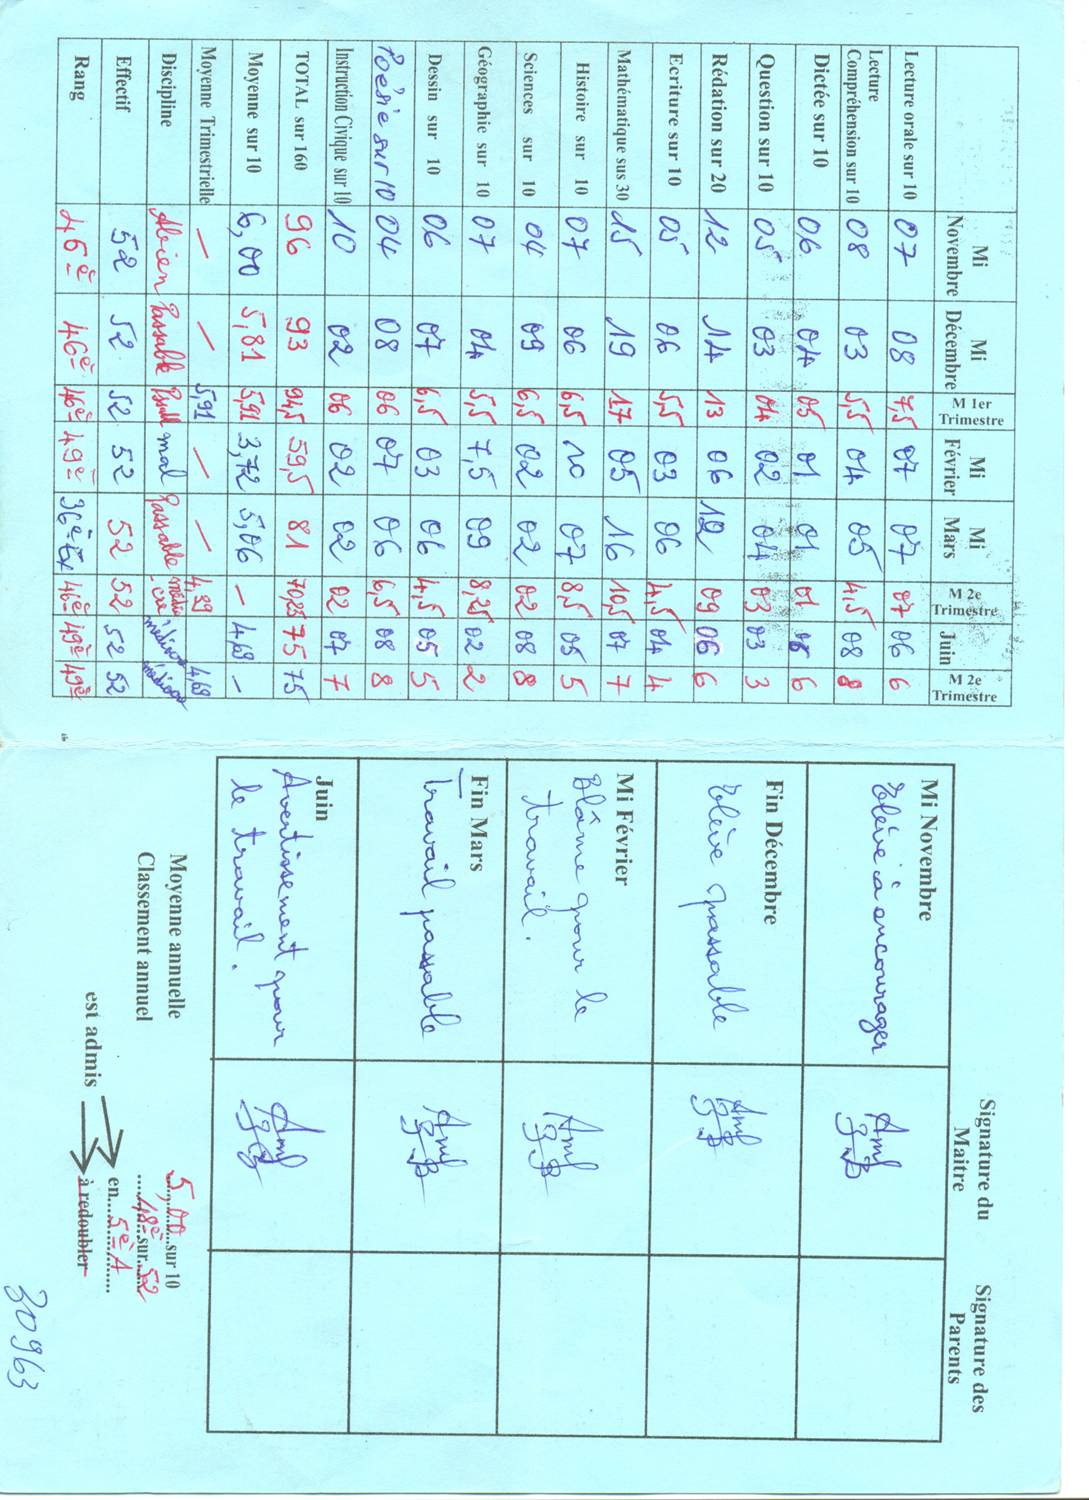 Mi Novembre | Mi Décembre | M 1er Trimestre | Mi Février | Mi Mars | M 2e Trimestre | Juin | M 2e Trimestre
Lecture orale sur 10 | 07 | 08 | 7,5 | 07 | 07 | 07 | 06 | 6
Lecture Compréhension sur 10 | 08 | 03 | 5,5 | 04 | 05 | 4,5 | 08 | 8
Dictée sur 10 | 06 | 04 | 05 | 01 | 01 | 01 | 6
Question sur 10 | 05 | 03 | 04 | 02 | 04 | 03 | 03 | 3
Rédation sur 20 | 12 | 14 | 13 | 06 | 12 | 09 | 06 | 6
Ecriture sur 10 | 05 | 06 | 5,5 | 03 | 06 | 4,5 | 04 | 4
Mathématique sus 30 | 15 | 19 | 17 | 05 | 16 | 10,5 | 07 | 7
Histoire sur 10 | 07 | 06 | 6,5 | 10 | 07 | 8,5 | 05 | 5
Sciences sur 10 | 04 | 09 | 6,5 | 02 | 02 | 02 | 08 | 8
Géographie sur 10 | 07 | 04 | 5,5 | 7,5 | 09 | 8,25 | 02 | 2
Dessin sur 10 | 06 | 07 | 6,5 | 03 | 06 | 4,5 | 05 | 5
Poésie sur 10 | 04 | 08 | 06 | 07 | 06 | 6,5 | 08 | 8
Instruction Civique sur 10 | 10 | 02 | 06 | 02 | 02 | 02 | 07 | 7
TOTAL sur 160 | 96 | 93 | 94,5 | 59,5 | 81 | 70,25 | 75 | 75
Moyenne sur 10 | 6,00 | 5,81 | 5,91 | 3,72 | 5,06 | – | 4,68 | –
Moyenne Trimestrielle | – | – | 5,91 | – | – | 4,39 | 4,68
Discipline | Passable | mal | Passable | médiocre
Effectif | 52 | 52 | 52 | 52 | 52 | 52 | 52 | 52
Rang | 46è | 46è | 46è | 49è | 36è Ex | 46è | 49è | 49è
Signature du Maitre
Signature des Parents
Mi Novembre
Elève à encourager
Fin Décembre
Elève passable
Mi Février
Blâme pour le
travail.
Fin Mars
Travail passable
Juin
Avertissement pour
le travail.
Moyenne annuelle 5,00 sur 10
Classement annuel 48è sur 52
est admis en 5è A
à redoubler
30963